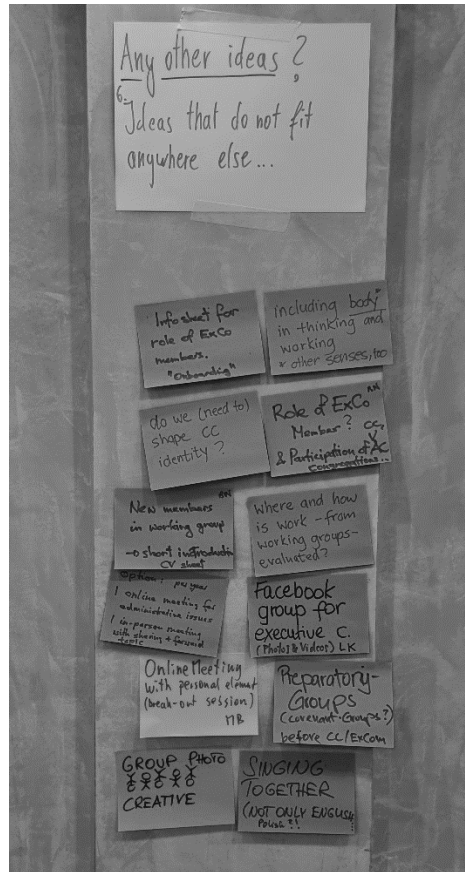 Any other ideas?
6.
Ideas that do not fit
anywhere else...
Info sheet for
role of ExCo
members.
"Onboarding"
including body
in thinking and
working
+ other senses, too
do we (need to)
shape CC
identity?
RN
Role of ExCo
Member? CC,
& Participation of AC
Congregations..
BN
New members
in working group
→ short introduction
CV sheet
Where and how
is work - from
working groups -
evaluated?
Option: per year
1 online meeting for
administrative issues
1 in-person meeting
with sharing + focused
topic
Facebook
group for
executive C.
(Photos & Videos) LK
Online Meeting
with personal element
(break-out session)
MB
Preparatory-
Groups
(covenant-Groups?)
before CC/ExCom
GROUP PHOTO
CREATIVE
SINGING
TOGETHER
(NOT ONLY ENGLISH
Polish?!